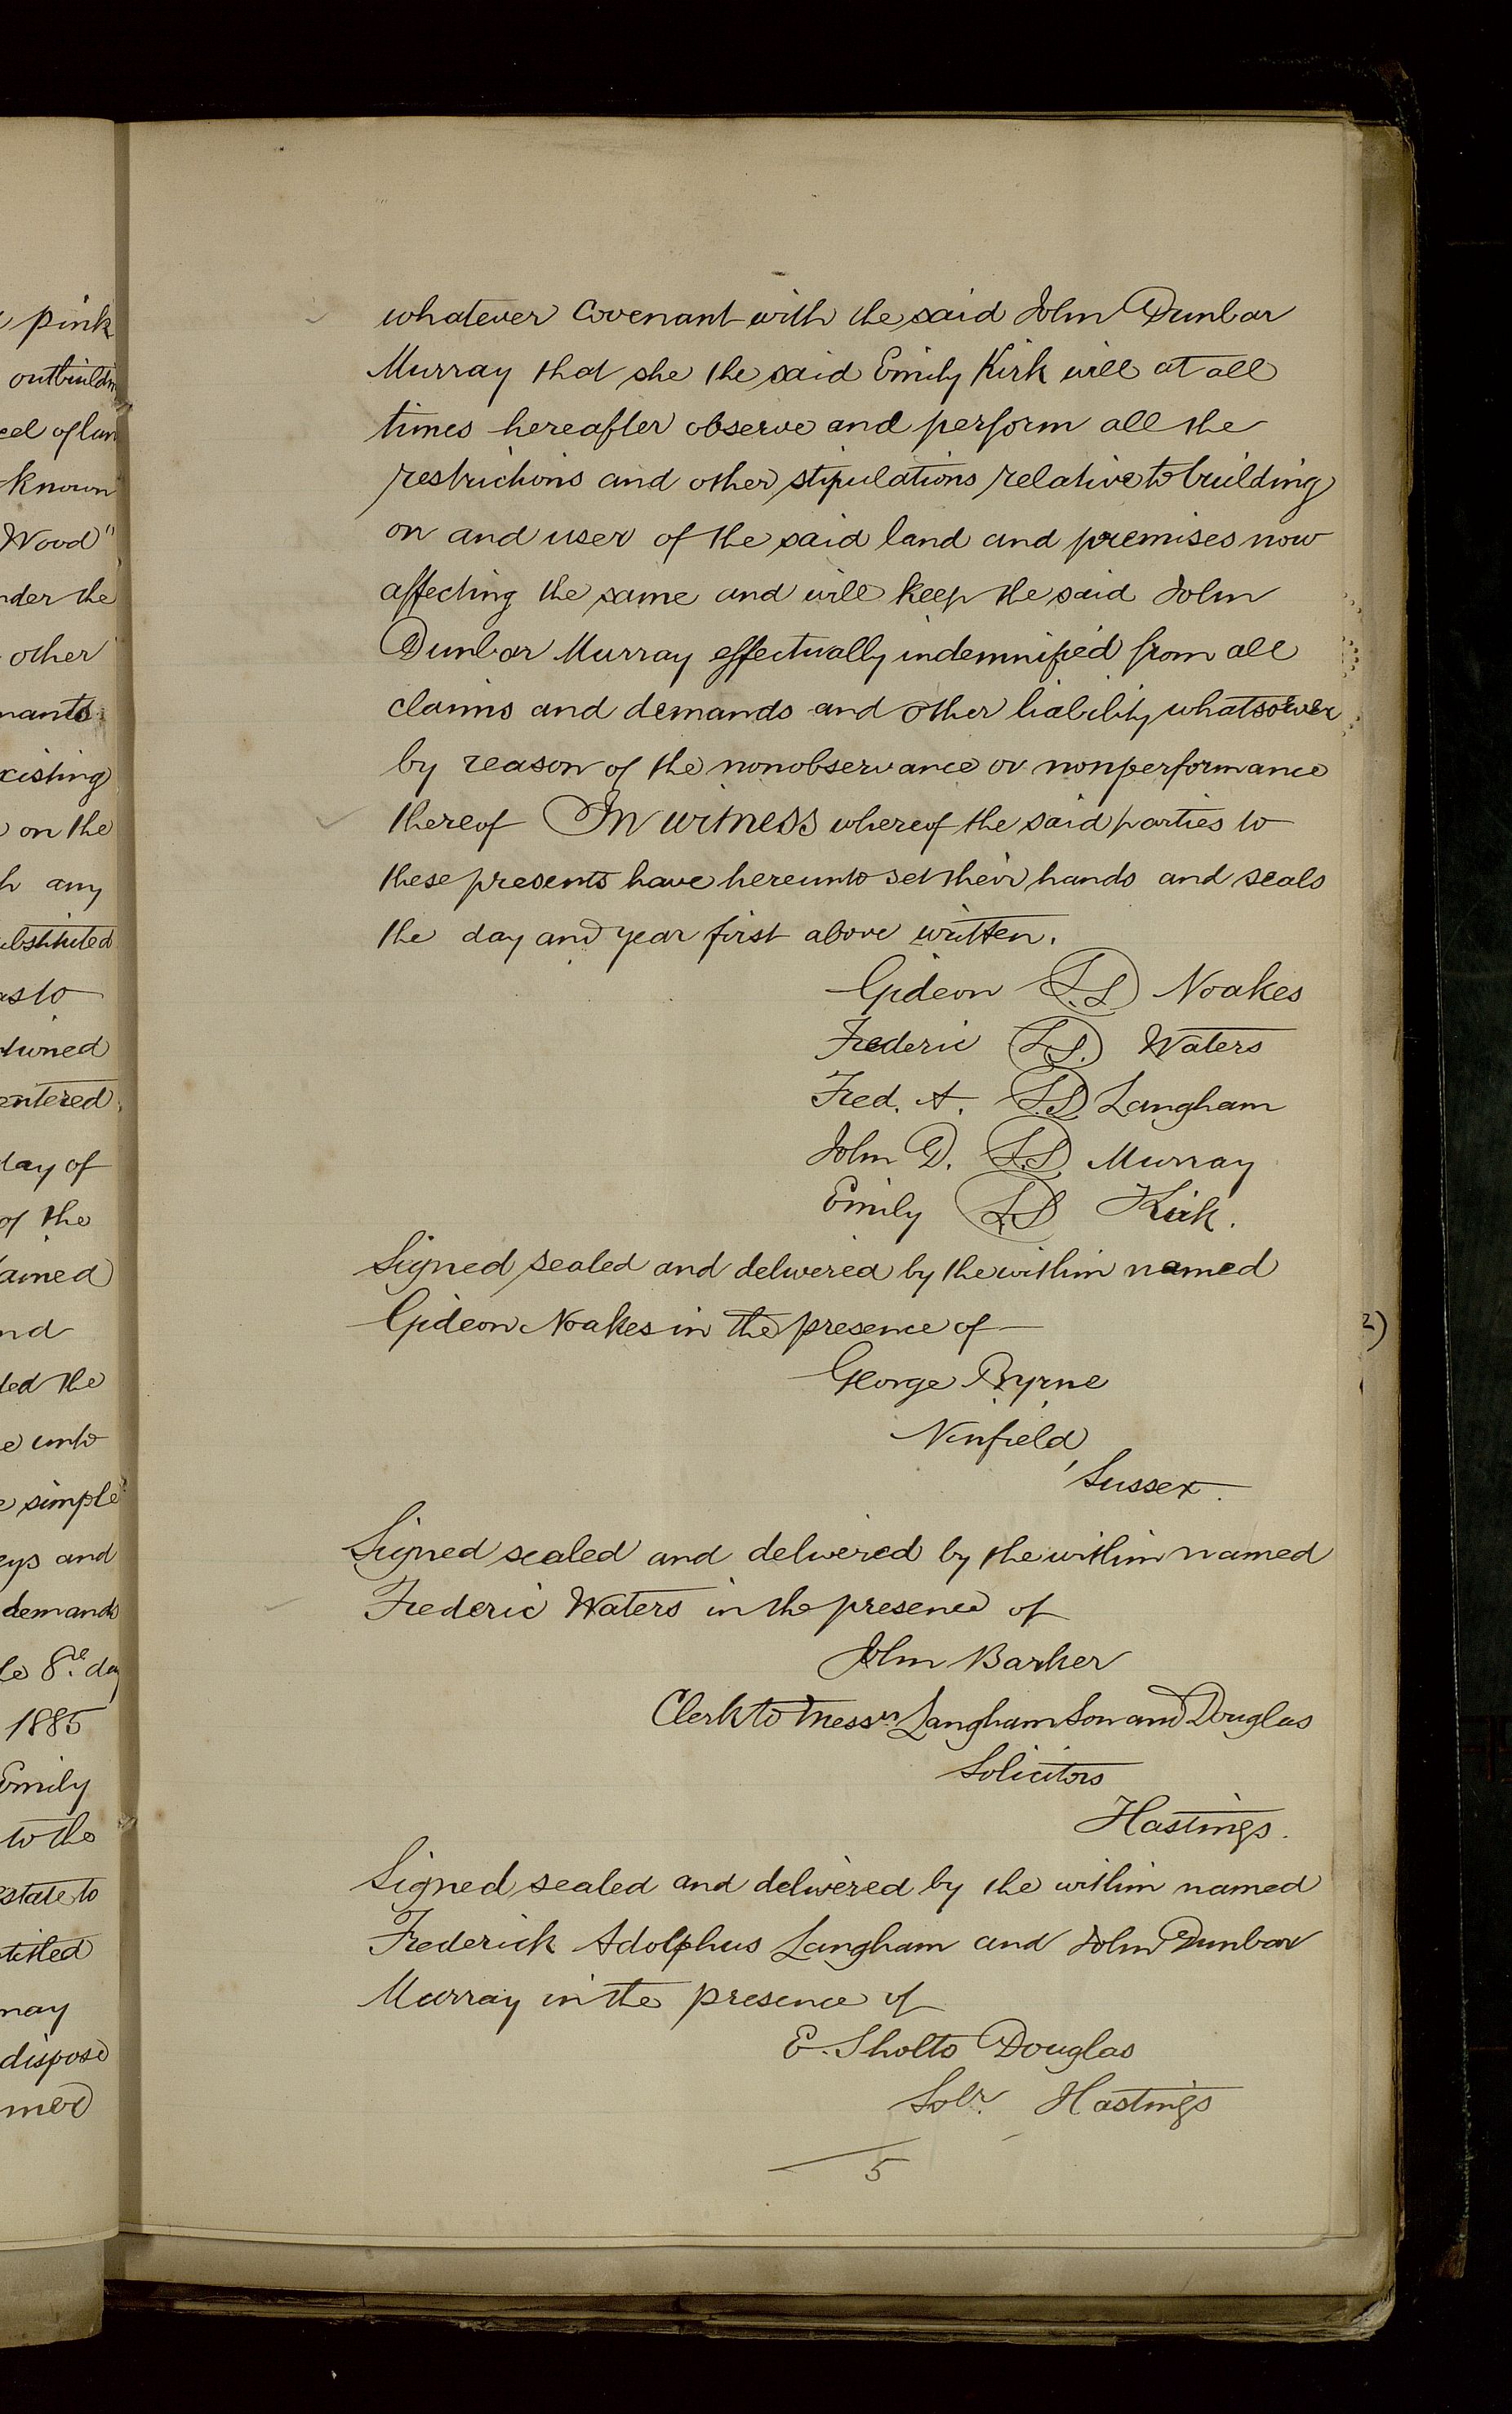 pink
outbuildin
cel of lan
known
Wood"
nder the
other
nants
xisting
on the
h any
ubstituted
as to
tioned
entered
day of
of the
tained
nd
ded the
e unto
e simple
eys and
demands
le 8th day
1885
Emily
to the
estate to
ntitled
may
dispose
mer
whatever Covenant with the said John Dunbar
Murray that she the said Emily Kirk will at all
times hereafter observe and perform all the
restrictions and other stipulations relative to building
on and user of the said land and premises now
affecting the same and will keep the said John
Dunbar Murray effectually indemnified from all
claims and demands and other liability whatsoever
by reason of the nonobservance or nonperformance
thereof In witness whereof the said parties to
these presents have hereunto set their hands and seals
the day and year first above written.
Gideon L.S. Noakes
Frederic L.S. Waters
Fred. A. L.S. Langham
John D. L.S. Murray
Emily L.S. Kirk.
Signed sealed and delivered by the within named
Gideon Noakes in the presence of
George Byrne
Ninfield,
Sussex.
Signed sealed and delivered by the within named
Frederic Waters in the presence of
John Barker
Clerk to Messrs Langham Son and Douglas
Solicitors
Hastings.
Signed sealed and delivered by the within named
Frederick Adolphus Langham and John Dunbar
Murray in the presence of
E. Sholto Douglas
Solr. Hastings
5
2)